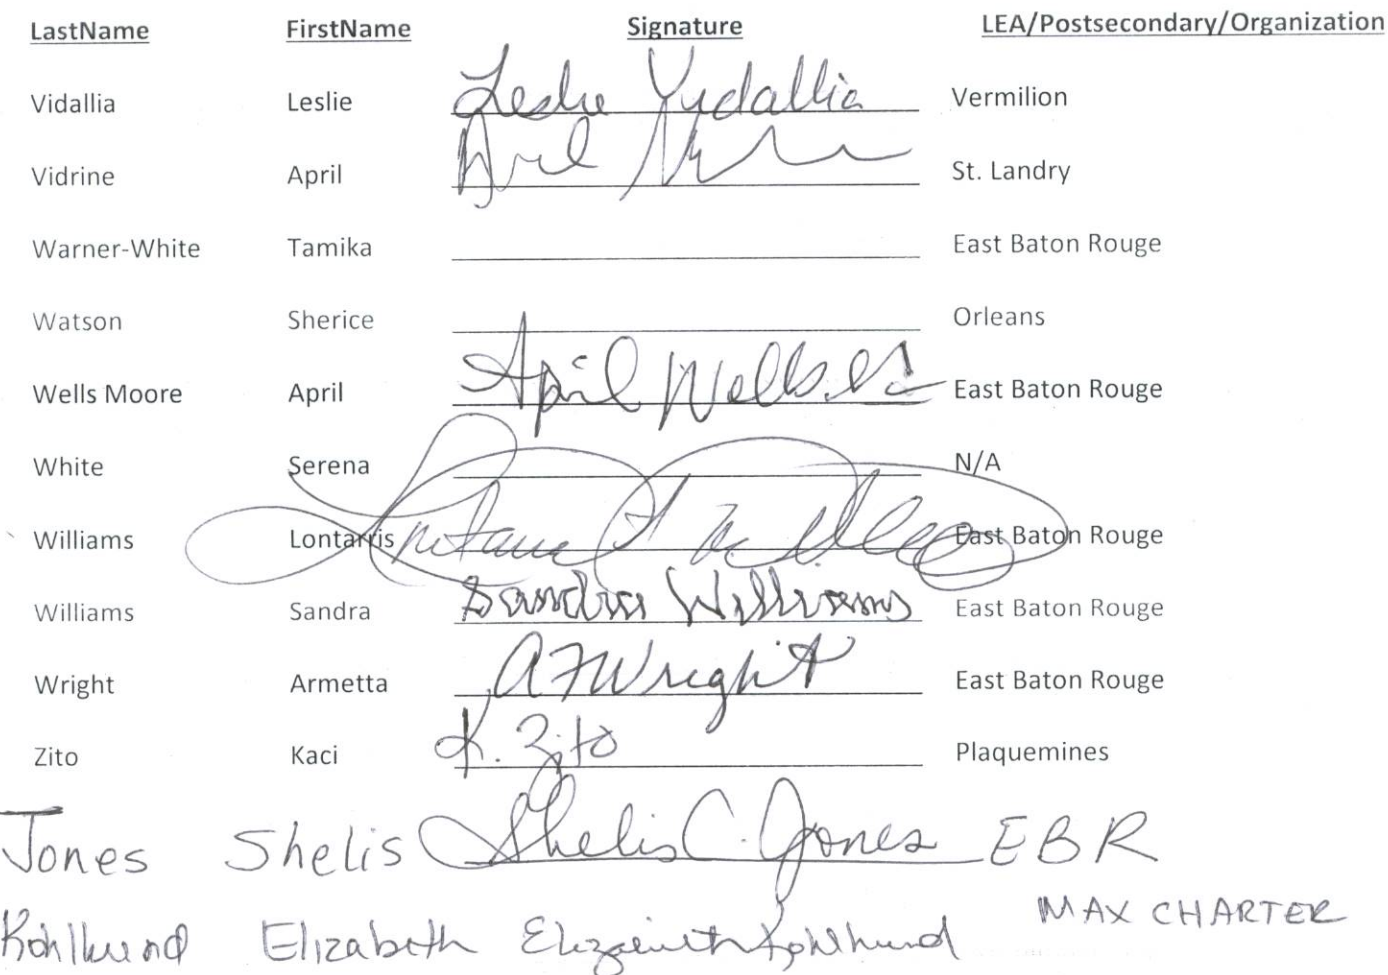 LastName FirstName Signature LEA/Postsecondary/Organization
Vidallia Leslie Leslie Vidallia Vermilion
Vidrine April April St. Landry
Warner-White Tamika East Baton Rouge
Watson Sherice Orleans
Wells Moore April April Wells East Baton Rouge
White Serena N/A
Williams Lontarris East Baton Rouge
Williams Sandra Sandra Williams East Baton Rouge
Wright Armetta A F Wright East Baton Rouge
Zito Kaci K. Zito Plaquemines
Jones Shelis Shelis C. Jones EBR
Elizabeth Elizabeth MAX CHARTER